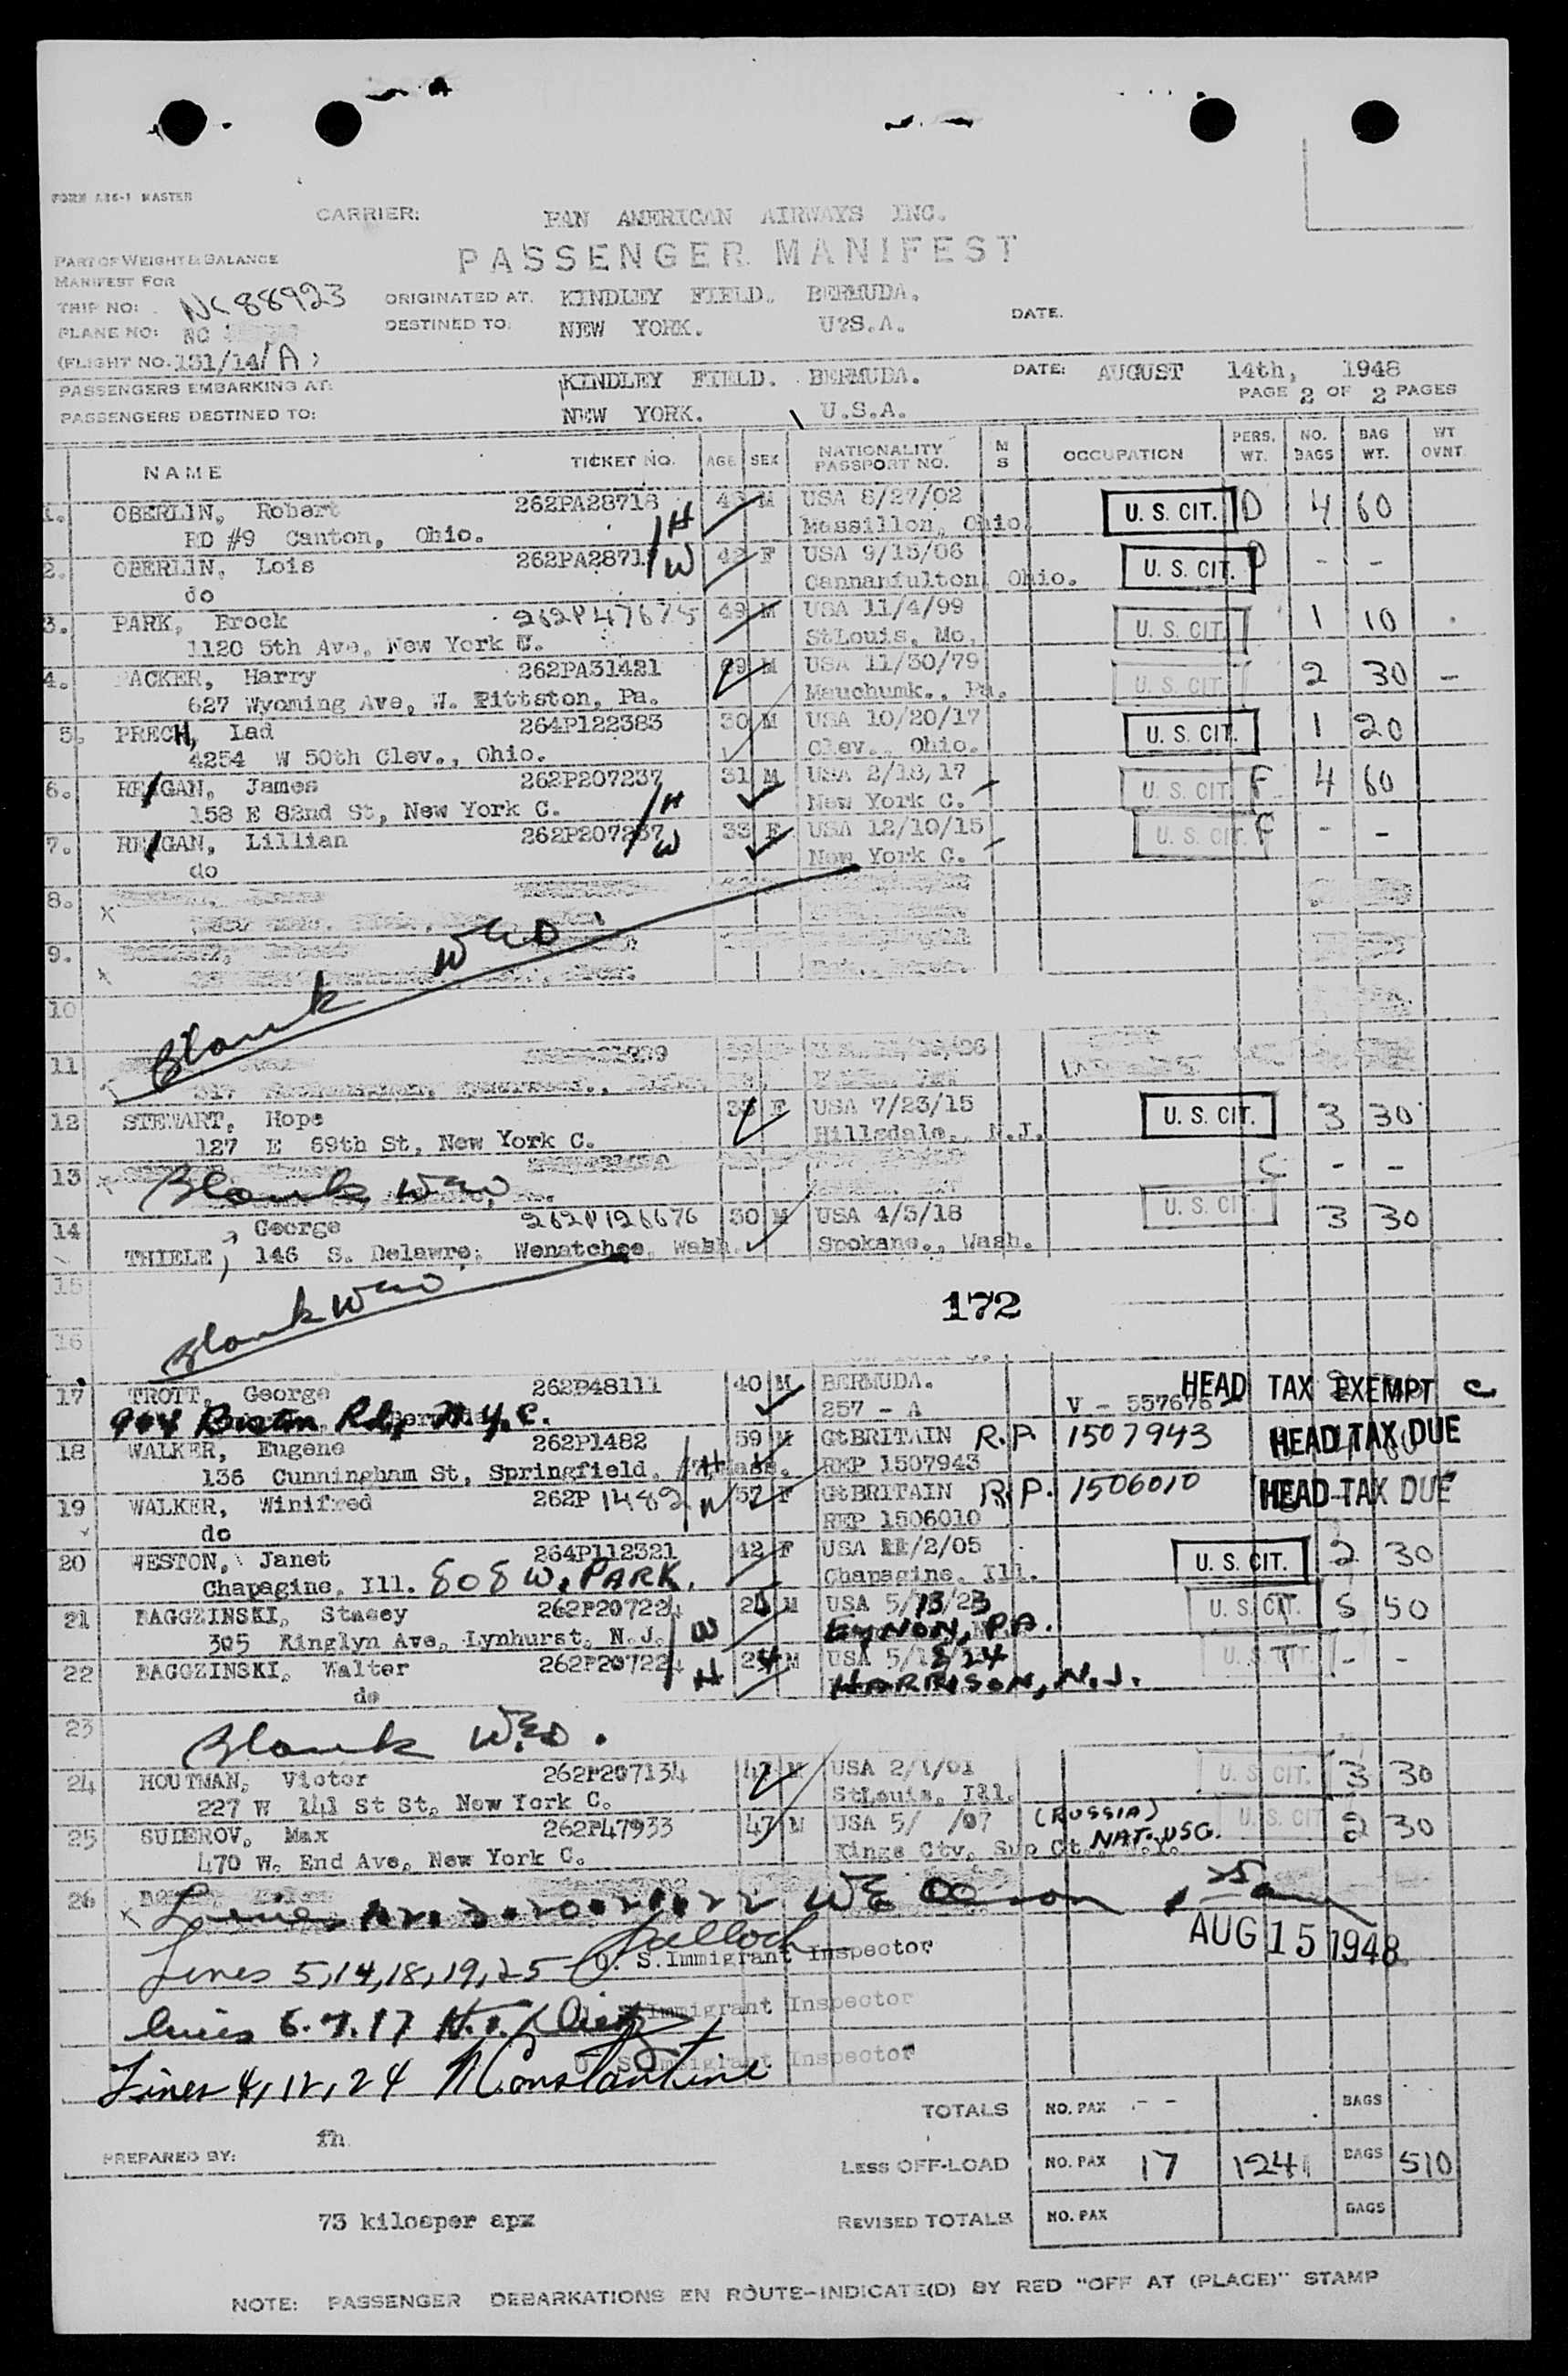 FORM A26-1 MASTER
CARRIER: PAN AMERICAN AIRWAYS INC.
PASSENGER MANIFEST
PART OF WEIGHT & BALANCE
MANIFEST FOR
TRIP NO: NC88923 ORIGINATED AT. KINDLEY FIELD. BERMUDA. DATE.
PLANE NO: NC DESTINED TO: NEW YORK. U?S.A.
(FLIGHT NO. 131/14/A)
PASSENGERS EMBARKING AT: KINDLEY FIELD. BERMUDA. DATE: AUGUST 14th, 1948
PASSENGERS DESTINED TO: NEW YORK. U.S.A. PAGE 2 OF 2 PAGES
NAME TICKET NO. AGE SEX NATIONALITY PASSPORT NO. M S OCCUPATION PERS. WT. NO. BAGS BAG WT. WT OVNT
1. OBERLIN, Robert 262PA28718 /H M USA 8/27/02 U. S. CIT. D 4 60
RD #9 Canton, Ohio. Massillon, Ohio.
2. OBERLIN, Lois 262PA2871 /W 42 F USA 9/15/06 U. S. CIT. D - -
do Cannanfulton Ohio.
3. PARK, Brock 262P47675 49 M USA 11/4/99 U. S. CIT 1 10
1120 5th Ave, New York C. StLouis, Mo.
4. PACKER, Harry 262PA31421 69 M USA 11/30/79 U. S. CIT 2 30 -
627 Wyoming Ave, W. Pittston, Pa. Mauchunk., Pa.
5. PRECH, Lad 264P122383 30 M USA 10/20/17 U. S. CIT. 1 20
4254 W 50th Clev., Ohio. Clev., Ohio.
6. RE/GAN, James 262P207237 /H 31 M USA 2/18,17 U. S. CIT F 4 60
158 E 82nd St, New York C. New York C.
7. RE/GAN, Lillian 262P207237 /W 33 F USA 12/10/15 U. S. CIT. F - -
do New York C.
8.
9.
Blank WEO
10
11
12 STEWART, Hope 33 F USA 7/23/15 U. S. CIT. 3 30
127 E 69th St, New York C. Hillsdale., N.J.
13 Blank WEO C - -
14 George 262P126676 30 M USA 4/5/18 U. S. CIT. 3 30
THIELE, 146 S. Delawre, Wenatchee, Wash. Spokane., Wash.
15
Blank WEO 172
16
17 TROTT, George 262P48111 40 M BERMUDA. HEAD TAX EXEMPT C
904 Boston Rd, N.Y.C. 257 - A V - 557676
18 WALKER, Eugene 262P1482 /H 59 M GtBRITAIN R.P. 1507943 HEAD TAX DUE
136 Cunningham St, Springfield, Mass. REP 1507943
19 WALKER, Winifred 262P 1482 W 57 F GtBRITAIN R.P. 1506010 HEAD TAX DUE
do REP 1506010
20 WESTON, Janet 264P112321 42 F USA 11/2/05 U. S. CIT. 2 30
Chapagine, Ill. 808 W. PARK. Chapagine, Ill.
21 BAGGZINSKI, Stacey 262P207224 /W 24 M USA 5/13/23 U. S. CIT. 5 50
305 Ringlyn Ave, Lynhurst, N.J. EYNON, PA.
22 BAGGZINSKI, Walter 262P207224 /H 24 M USA 5/18/24 - -
do HARRISON, N.J.
23 Blank W.E.O.
24 HOUTMAN, Victor 262P207134 47 M USA 2/1/01 U. S. CIT. 3 30
227 W 141 St St, New York C. StLouis, Ill.
25 SUDEROV, Max 262P47933 47 M USA 5/ /07 (RUSSIA) U. S. CIT 2 30
470 W. End Ave, New York C. Kings Cty, Sup Ct. N.Y. NAT. USG.
26 Lines 1.2.3.20.21.22 WE
AUG 15 1948
Lines 5,14,18,19,25 U. S. Immigrant Inspector
Lines 6.7.17 Immigrant Inspector
Lines 4,12,24 N Constantine U. S. Immigrant Inspector
TOTALS NO. PAX - - BAGS
PREPARED BY: fh
LESS OFF-LOAD NO. PAX 17 1241 BAGS 510
73 kilosper apx REVISED TOTALS NO. PAX BAGS
NOTE: PASSENGER DEBARKATIONS EN ROUTE-INDICATE(D) BY RED "OFF AT (PLACE)" STAMP